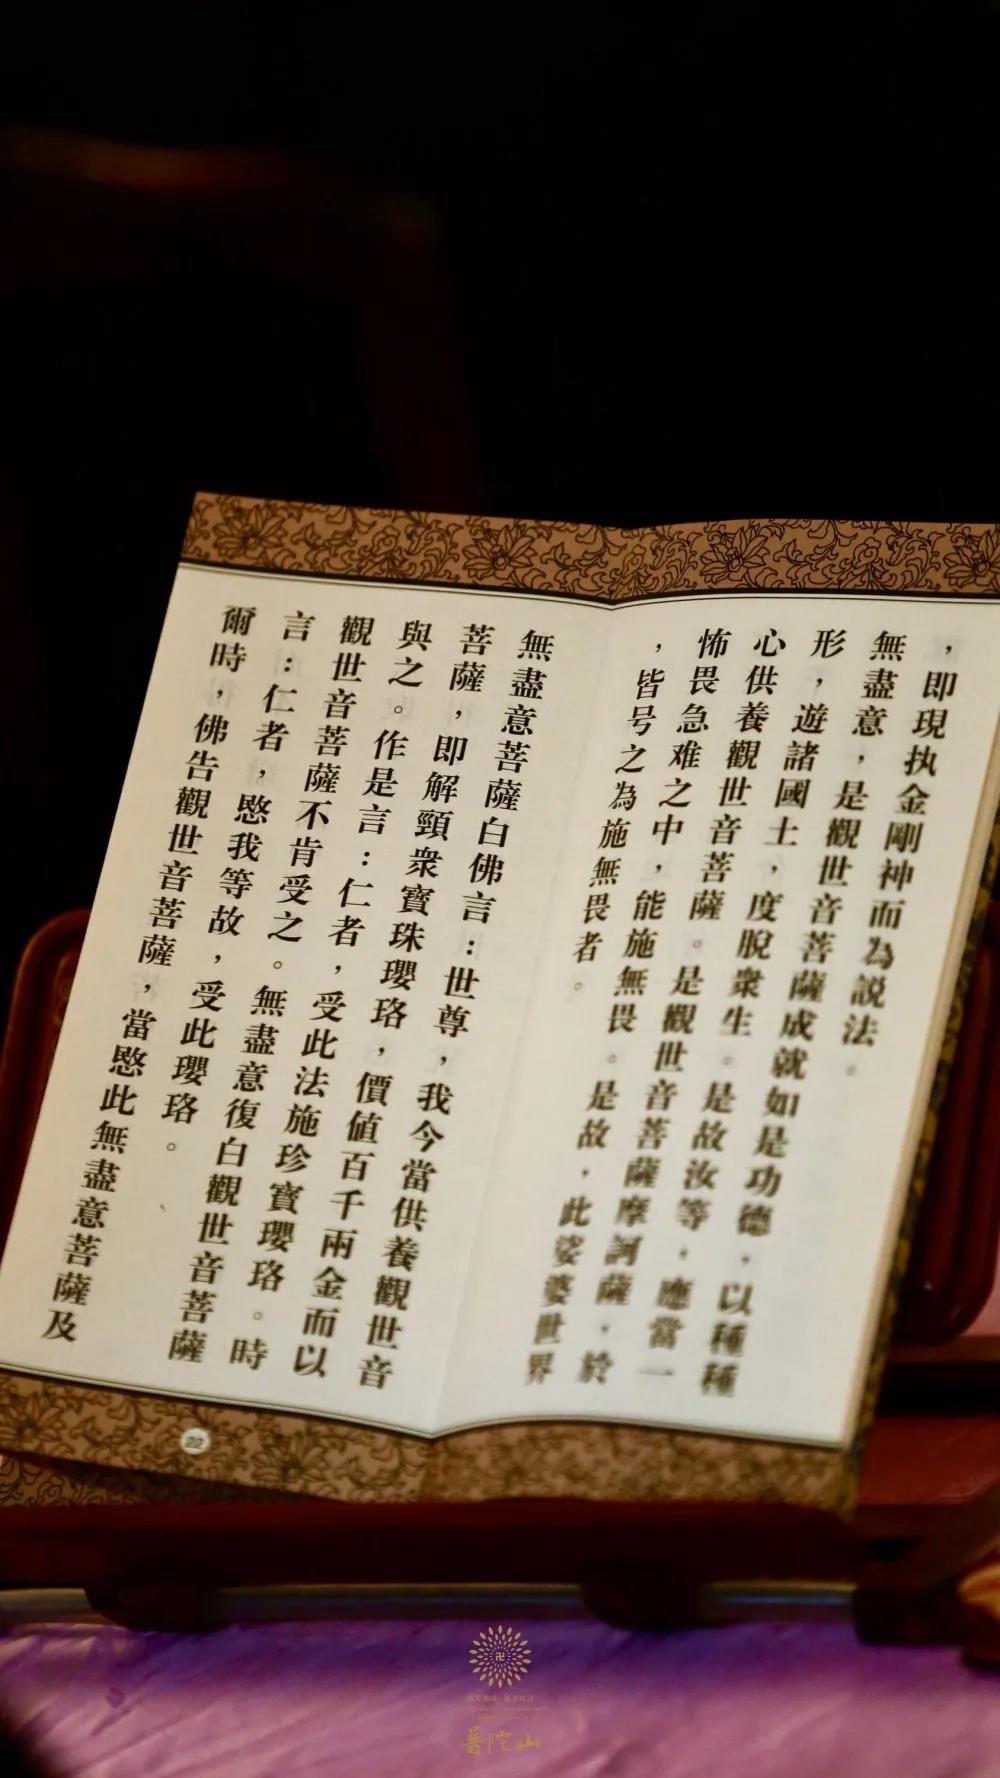 ，即現执金剛神而為説法。
無盡意，是觀世音菩薩成就如是功德，以種種
形，遊諸國土，度脫衆生。是故汝等，應當一
心供養觀世音菩薩。是觀世音菩薩摩訶薩，於
怖畏急难之中，能施無畏。是故，此娑婆世界
，皆号之為施無畏者。
無盡意菩薩白佛言：世尊，我今當供養觀世音
菩薩，即解頸衆寳珠瓔珞，價值百千兩金而以
與之。作是言：仁者，受此法施珍寳瓔珞。時
觀世音菩薩不肯受之。無盡意復白觀世音菩薩
言：仁者，愍我等故，受此瓔珞。
爾時，佛告觀世音菩薩，當愍此無盡意菩薩及
22
卍
普陀山